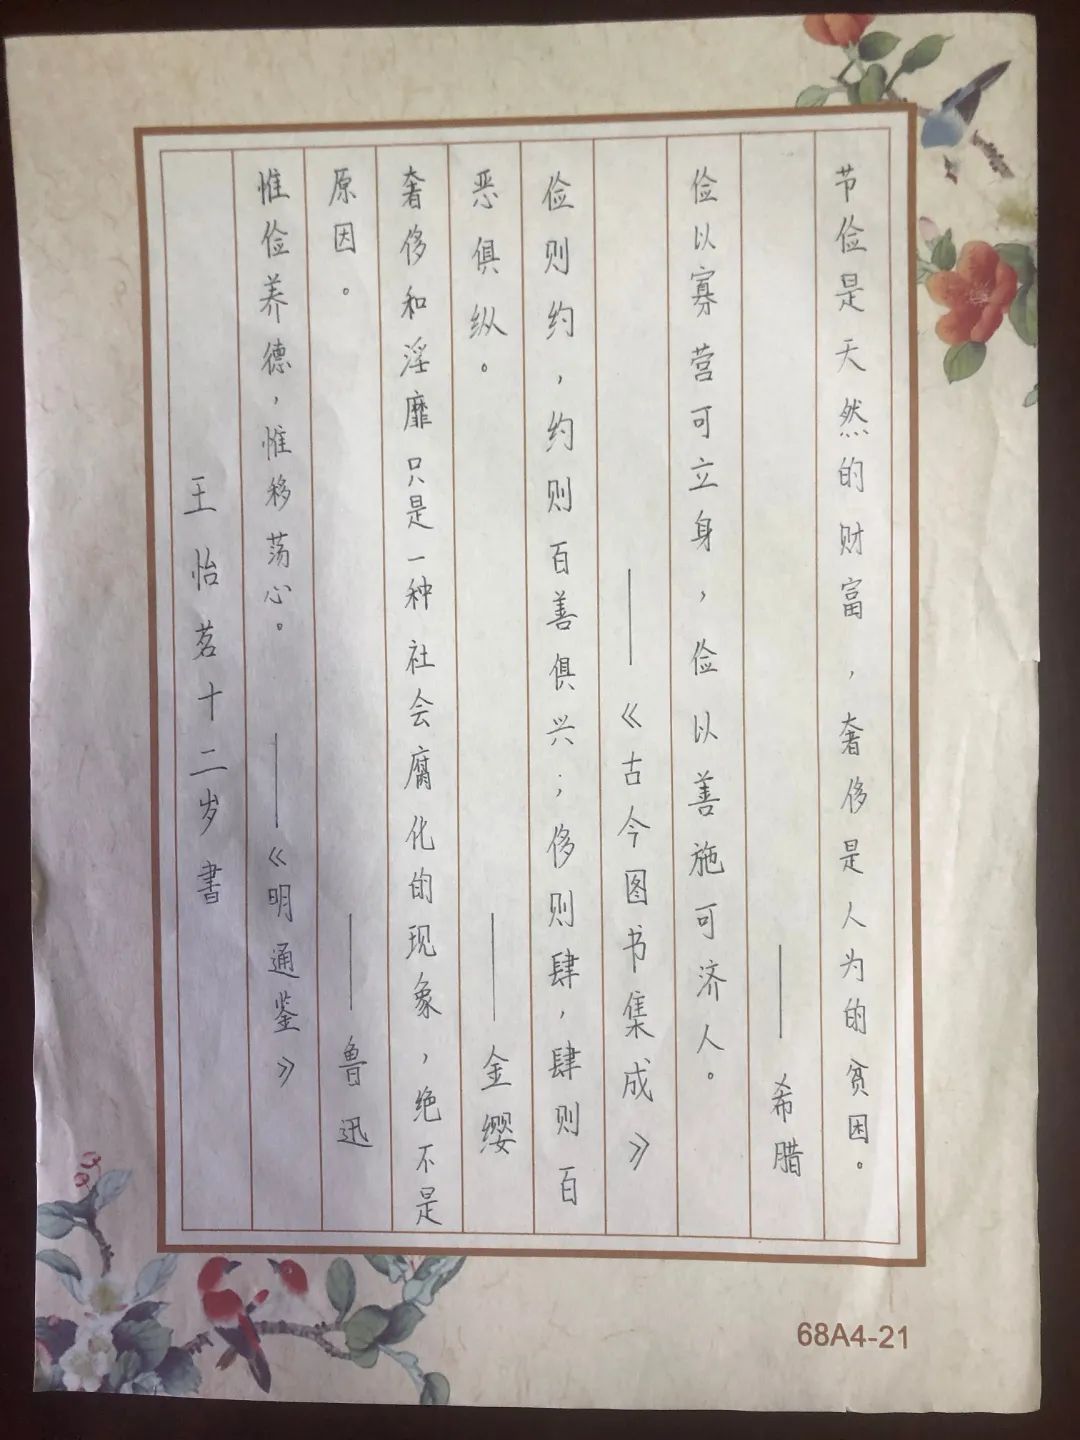 节俭是天然的财富，奢侈是人为的贫困。
——希腊
俭以寡营可立身，俭以善施可济人。
——《古今图书集成》
俭则约，约则百善俱兴；侈则肆，肆则百
恶俱纵。——金缨
奢侈和淫靡只是一种社会腐化的现象，绝不是
原因。——鲁迅
惟俭养德，惟移荡心。——《明通鉴》
王怡茗十二岁書
68A4-21